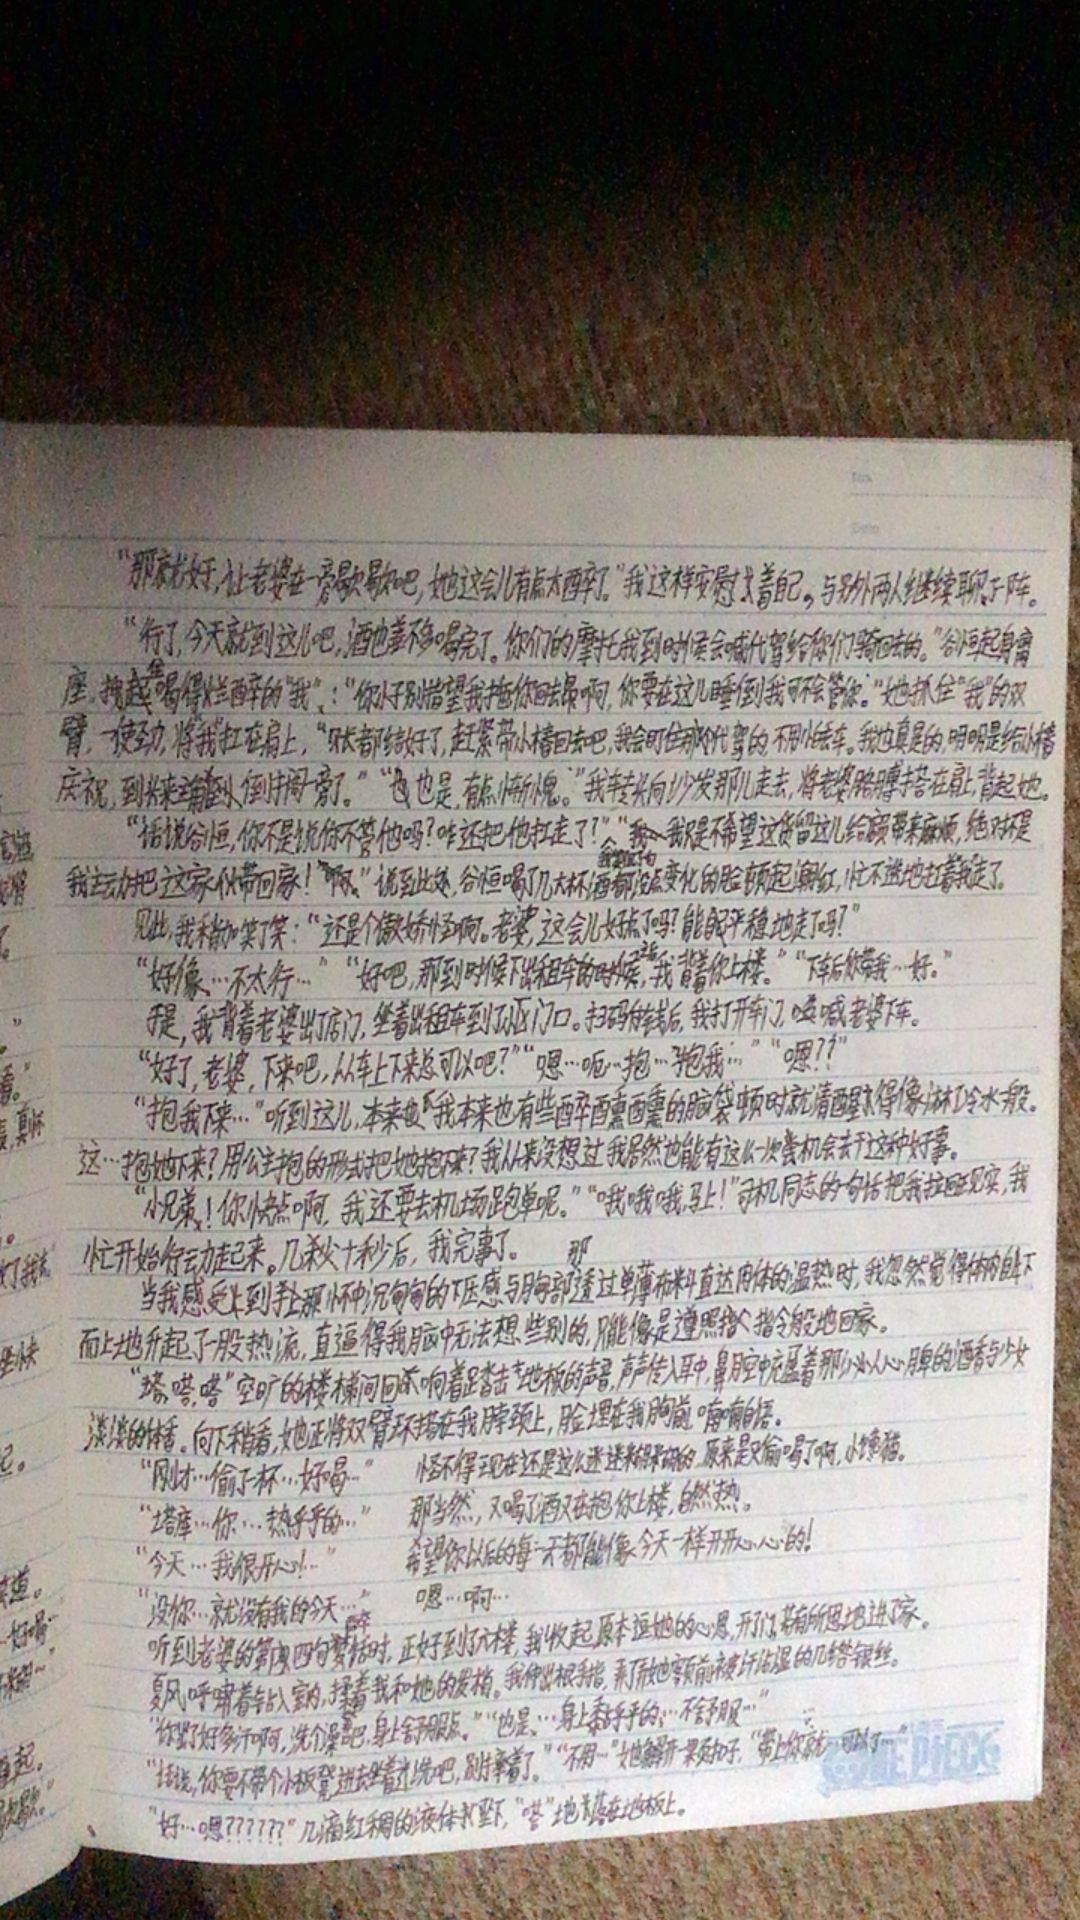 “那就好,让老婆在一旁歇歇吧,她这会儿有点太醉了。”我这样安慰着自己,与另外两人继续聊了一阵。
“行了,今天就到这儿吧,酒也差不多喝完了。你们的摩托我到时候会喊代驾给你们骑回去的。”谷恒起身离
座,拽起喝得烂醉的“我”:“你小子别指望我拖你回去啊,你要在这儿睡倒我可不会管你。”她抓住“我”的双
臂,一使劲,将“我”扛在肩上,“账都结好了,赶紧带小楂回去吧,我会盯住那个代驾的,不用担心车。我也真是的,明明是给小楂
庆祝,到头来主角倒倒一旁了。”“也是,有点惭愧。”我转头向沙发那儿走去,将老婆胳膊搭在肩上,背起她。
“话说谷恒,你不是说你不管他吗?咋还把他扛走了?”“我只是不希望这货留这儿给店带来麻烦,绝对不是
我主动把这家伙带回家!啊。”说到此处,谷恒喝了几大杯酒都没点变化的脸顿起潮红,忙不迭地扛着我走了。
见此,我稍加笑了笑:“还是个傲娇怪啊。老婆,这会儿好点了吗?能平稳地走了吗?”
“好像…不太行…”“好吧,那到时候下出租车的时候,我背着你上楼。”“下车后你带我…好。”
于是,我背着老婆出了店门,坐着出租车到了小区门口。扫码付钱后,我打开车门,唤喊老婆下车。
“好了,老婆,下来吧,从车上下来总可以吧?”“嗯…呃…抱…抱我…”“嗯??”
“抱我下来…”听到这儿,我本来也有些醉醺醺的脑袋顿时就清醒得像淋了冷水一般。
这…抱她下来?用公主抱的形式把她抱下来?我从来没想过我居然也能有这么一次尝机会去干这种好事。
“小兄弟!你快点啊,我还要去机场跑单呢。”“哦哦哦,马上!”司机同志的一句话把我拉回现实,我
忙开始行动起来。几秒火十秒后,我完事了。
当我感受到手上那怀中沉甸甸的下压感与胸部那透过单薄布料直达肉体的温热时,我忽然觉得体内自下
而上地升起了一股热流,直逼得我脑中无法想些别的,只能像是遵照指令般地回家。
“嗒,嗒,嗒”空旷的楼梯间回响着足踏击地板的声音,声声传入耳中,鼻腔中充盈着那沁人心脾的酒香与少女
淡淡的体香。向下稍看,她正将双臂环搭在我脖颈上,脸埋在我胸前,喃喃自语。
“刚才…偷了一杯…好喝…” 怪不得现在还是这么迷迷糊糊的,原来是又偷喝了啊,小馋猫。
“塔库…你…热乎乎的…” 那当然,又喝了酒又在抱你上楼,自然热。
“今天…我很开心!…” 希望你以后的每一天都能像今天一样开开心心的!
“没你…就没有我的今天…” 嗯…啊…
听到老婆的第四句梦话时,正好到了六楼,我收起原本逗她的心思,开了门,若有所思地进了家。
夏风呼啸着钻入室内,揉着我和她的发梢。我伸出根手指,剥散她额前被汗沾湿的几绺银丝。
“你出了好多汗啊,洗个澡吧,身上舒服点。”“也是,…身上黏乎乎的,…不舒服…”
“话说,你要不带个小板凳进去坐着洗吧,别摔着了。”“不用…”她解开一颗扣子,“带上你就…可以了…”
“好…嗯??????”几滴红稠的液体坠下,“嗒”地落在地板上。